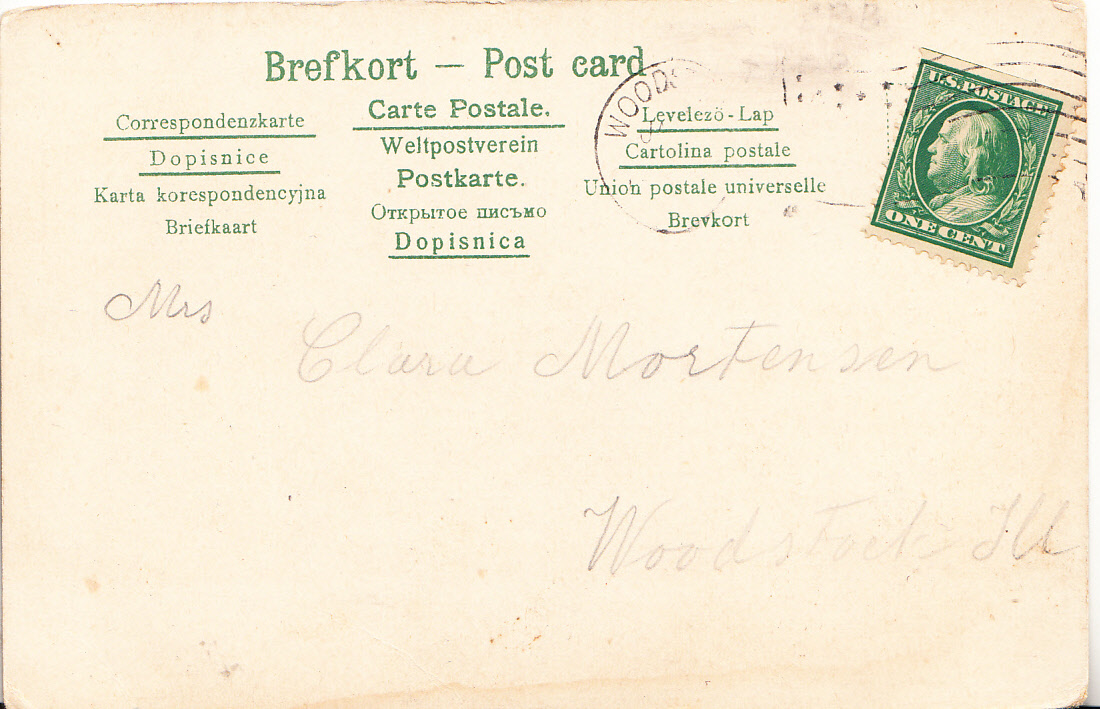 Brefkort — Post card
Correspondenzkarte
Dopisnice
Karta korespondencyjna
Briefkaart
Carte Postale.
Weltpostverein
Postkarte.
Открытое письмо
Dopisnica
Levelezö-Lap
Cartolina postale
Union postale universelle
Brevkort
WOODS
U.S. POSTAGE
ONE CENT
Mrs
Clara Mortensen
Woodstock Ill